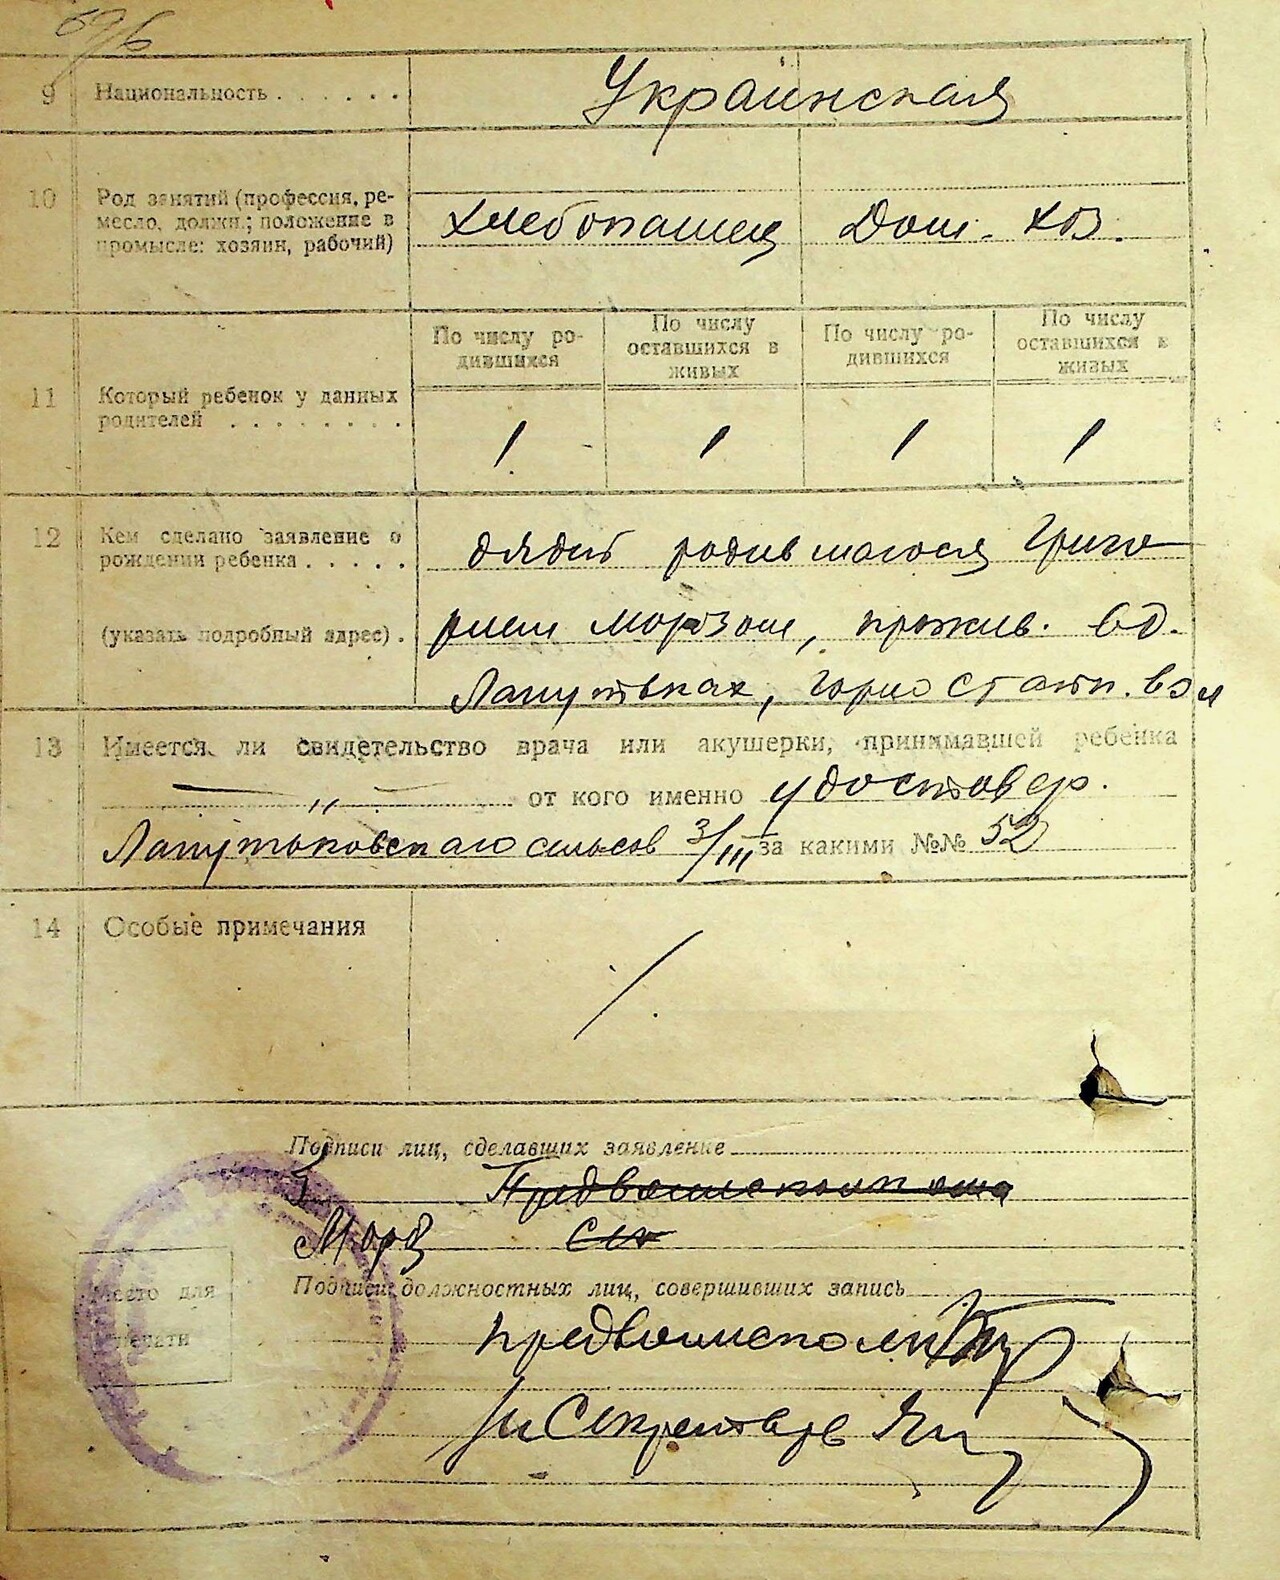 9 Национальность . . . . . . Украинская
10 Род занятий (профессия, ре-
месло, должн.; положение в
промысле: хозяин, рабочий)
хлебопашец Дом. хоз.
По числу ро-
дившихся
По числу
оставшихся в
живых
По числу ро-
дившихся
По числу
оставшихся в
живых
11 Который ребенок у данных
родителей . . . . . . . .
1 1 1 1
12 Кем сделано заявление о
рождении ребенка . . . . .
(указать подробный адрес) .
дядей родившагося Григо
рием Морозом, прожив. в д.
Лапутьках, Горностайп. вол
13 Имеется ли свидетельство врача или акушерки, принимавшей ребенка
— „ — от кого именно удостовер.
Лапутьковскаго сельсов 3/III за какими №№ 52
14 Особые примечания
Подписи лиц, сделавших заявление
Предволисполкома
Мороз
Место для
печати
Подписи должностных лиц, совершивших запись
предволисполк
Секретарь